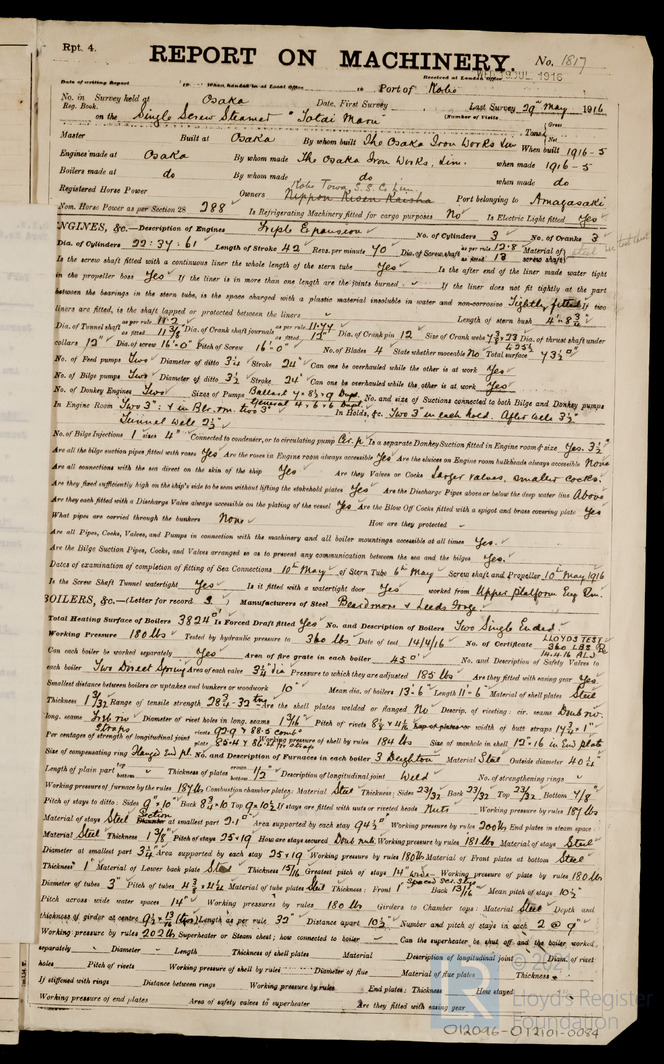 Rpt. 4.
REPORT ON MACHINERY.
No. 1817
Date of writing Report When handed in at Local Office Received at London Office WED. 19 JUL 1916
Port of Kobe
No. in Survey held at Osaka Date, First Survey Last Survey 29th May 1916
Reg. Book. (Number of Visits
on the Single Screw Steamer "Totai Maru" Tons Gross Net
Master Built at Osaka By whom built The Osaka Iron Works Lim When built 1916-5
Engines made at Osaka By whom made The Osaka Iron Works, Lim. when made 1916-5
Boilers made at do By whom made do when made do
Registered Horse Power Owners Kobe Towa S.S. Co Lim. Nippon Kisen Kaisha Port belonging to Amagasaki
Nom. Horse Power as per Section 28 288 Is Refrigerating Machinery fitted for cargo purposes No Is Electric Light fitted Yes
ENGINES, &c.—Description of Engines Triple Expansion No. of Cylinders 3 No. of Cranks 3
Dia. of Cylinders 22: 37: 61 Length of Stroke 42 Revs. per minute 70 Dia. of Screw shaft as per rule 12.8 as fitted 13 Material of screw shaft steel
Is the screw shaft fitted with a continuous liner the whole length of the stern tube Yes Is the after end of the liner made water tight
in the propeller boss Yes If the liner is in more than one length are the joints burned If the liner does not fit tightly at the part
between the bearings in the stern tube, is the space charged with a plastic material insoluble in water and non-corrosive Tightly fitted If two
liners are fitted, is the shaft lapped or protected between the liners Length of stern bush 4'-8¾"
Dia. of Tunnel shaft as per rule 11.2 as fitted 11 3/8 Dia. of Crank shaft journals as per rule 11.77 as fitted 12" Dia. of Crank pin 12 Size of Crank webs 7¾ x 23 Dia. of thrust shaft under
collars 12" Dia. of screw 16'-0" Pitch of Screw 16'-0" No. of Blades 4 State whether moveable No Total surface 73½□'
No. of Feed pumps Two Diameter of ditto 3½ Stroke 24" Can one be overhauled while the other is at work Yes
No. of Bilge pumps Two Diameter of ditto 3½ Stroke 24" Can one be overhauled while the other is at work Yes
No. of Donkey Engines Two Sizes of Pumps Ballast 7 x 8½ x 9 Dupl. General 4 x 6 x 6 Dupl. No. and size of Suctions connected to both Bilge and Donkey pumps
In Engine Room Two 3": & in Blr. rm. two 3" In Holds, &c. Two 3" in each hold. After well 3½"
Tunnel Well 2½"
No. of Bilge Injections 1 sizes 4" Connected to condenser, or to circulating pump Cir. p. Is a separate Donkey Suction fitted in Engine room & size Yes. 3½"
Are all the bilge suction pipes fitted with roses Yes Are the roses in Engine room always accessible Yes Are the sluices on Engine room bulkheads always accessible None
Are all connections with the sea direct on the skin of the ship Yes Are they Valves or Cocks Larger valves, smaller cocks.
Are they fixed sufficiently high on the ship's side to be seen without lifting the stokehold plates Yes Are the Discharge Pipes above or below the deep water line Above
Are they each fitted with a Discharge Valve always accessible on the plating of the vessel Yes Are the Blow Off Cocks fitted with a spigot and brass covering plate Yes
What pipes are carried through the bunkers None How are they protected
Are all Pipes, Cocks, Valves, and Pumps in connection with the machinery and all boiler mountings accessible at all times Yes.
Are the Bilge Suction Pipes, Cocks, and Valves arranged so as to prevent any communication between the sea and the bilges Yes.
Dates of examination of completion of fitting of Sea Connections 10th May of Stern Tube 6th May Screw shaft and Propeller 10th May 1916
Is the Screw Shaft Tunnel watertight Yes Is it fitted with a watertight door Yes worked from Upper Platform Eng Rm.
BOILERS, &c.—(Letter for record S) Manufacturers of Steel Beardmore & Leeds Forge
Total Heating Surface of Boilers 3824□' Is Forced Draft fitted Yes No. and Description of Boilers Two Single Ended
Working Pressure 180 lbs Tested by hydraulic pressure to 360 lbs Date of test 14/4/16 No. of Certificate LLOYDS TEST 360 LBS 14.4.16 ALJ
Can each boiler be worked separately Yes Area of fire grate in each boiler 45□' No. and Description of Safety Valves to
each boiler Two Direct Spring Area of each valve 3¾"dia Pressure to which they are adjusted 185 lbs Are they fitted with easing gear Yes.
Smallest distance between boilers or uptakes and bunkers or woodwork 10" Mean dia. of boilers 13'-6" Length 11'-6" Material of shell plates Steel
Thickness 1 3/32 Range of tensile strength 28¾-32 tns Are the shell plates welded or flanged No Descrip. of riveting: cir. seams Doub. riv.
long. seams Trip riv Straps Diameter of rivet holes in long. seams 1 3/16" Pitch of rivets 8½ & 4¼ Lap of plates or width of butt straps 17¾ x 1"
Per centages of strength of longitudinal joint rivets 92.9 & 88.5 comb plate 85.4 & Working pressure of shell by rules 184 lbs Size of manhole in shell 12 x 16 in End plate
Size of compensating ring Flanged End pl. No. and Description of Furnaces in each boiler 3 Deighton Material Steel Outside diameter 40½"
Length of plain part top bottom Thickness of plates crown bottom 1/2" Description of longitudinal joint Weld No. of strengthening rings
Working pressure of furnace by the rules 187 lbs Combustion chamber plates: Material Steel Thickness: Sides 23/32 Back 23/32 Top 23/32 Bottom 7/8"
Pitch of stays to ditto: Sides 9 x 10" Back 8¾ x 10 Top 9 x 10½ If stays are fitted with nuts or riveted heads Nuts Working pressure by rules 187 lbs
Material of stays Steel Section at smallest part 2.1□" Area supported by each stay 94½□" Working pressure by rules 200 lbs End plates in steam space:
Material Steel Thickness 1 3/8" Pitch of stays 25 x 19 How are stays secured Doub. nuts Working pressure by rules 181 lbs Material of stays Steel
Diameter at smallest part 3¼" Area supported by each stay 25 x 19 Working pressure by rules 180 lbs Material of Front plates at bottom Steel
Thickness 1" Material of Lower back plate Steel Thickness 15/16 Greatest pitch of stays 14" wide Working pressure of plate by rules 180 lbs
Diameter of tubes 3" Pitch of tubes 4¼ x 4¼ Material of tube plates Steel Thickness: Front 1" Back 13/16" Mean pitch of stays 10½
Pitch across wide water spaces 14" Working pressures by rules 180 lbs Girders to Chamber tops: Material Steel Depth and
thickness of girder at centre 9½ x 13/16 (two) Length as per rule 32" Distance apart 10½ Number and pitch of stays in each 2 @ 9"
Working pressure by rules 202 lbs Superheater or Steam chest; how connected to boiler Can the superheater be shut off and the boiler worked
separately Diameter Length Thickness of shell plates Material Description of longitudinal joint Diam. of rivet
holes Pitch of rivets Working pressure of shell by rules Diameter of flue Material of flue plates Thickness
If stiffened with rings Distance between rings Working pressure by rules End plates: Thickness How stayed
Working pressure of end plates Area of safety valves to superheater Are they fitted with easing gear
© 2021
Lloyd's Register
Foundation
012096-012101-0084